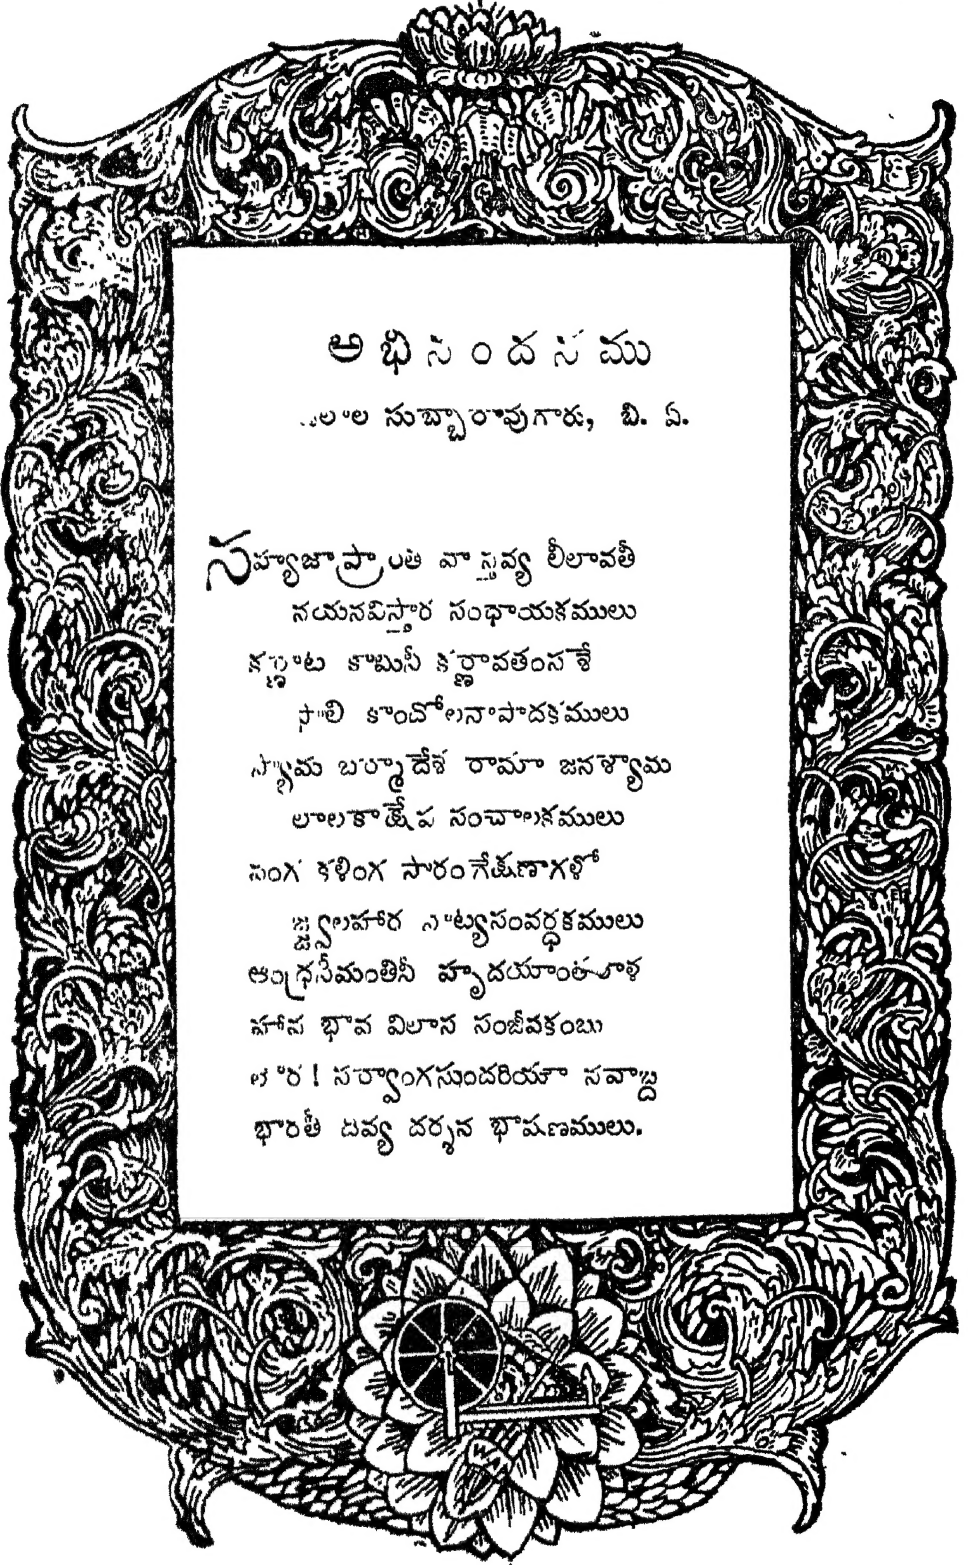 అభినందనము
సుబ్బారావుగారు, బి. ఏ.
సహ్యజాప్రాంత వాస్తవ్య లీలావతీ
నయనవిస్తార సంధాయకములు
కర్ణాట కాటుసీ కర్ణావతంసశే
కాందోలనాపాదకములు
బర్మాదేశ రామా జనశ్యామ
లాలకాక్షేప సంచాలకములు
కళింగ సారంగేక్షణాగళో
జ్జ్వలహార నాట్యసంవర్ధకములు
ఆంధ్రసీమంతినీ హృదయాంతరాళ
హావ భావ విలాస సంజీవకంబు
సర్వాంగసుందరియౌ నవాబ్ద
భారతీ దివ్య దర్శన భాషణములు.